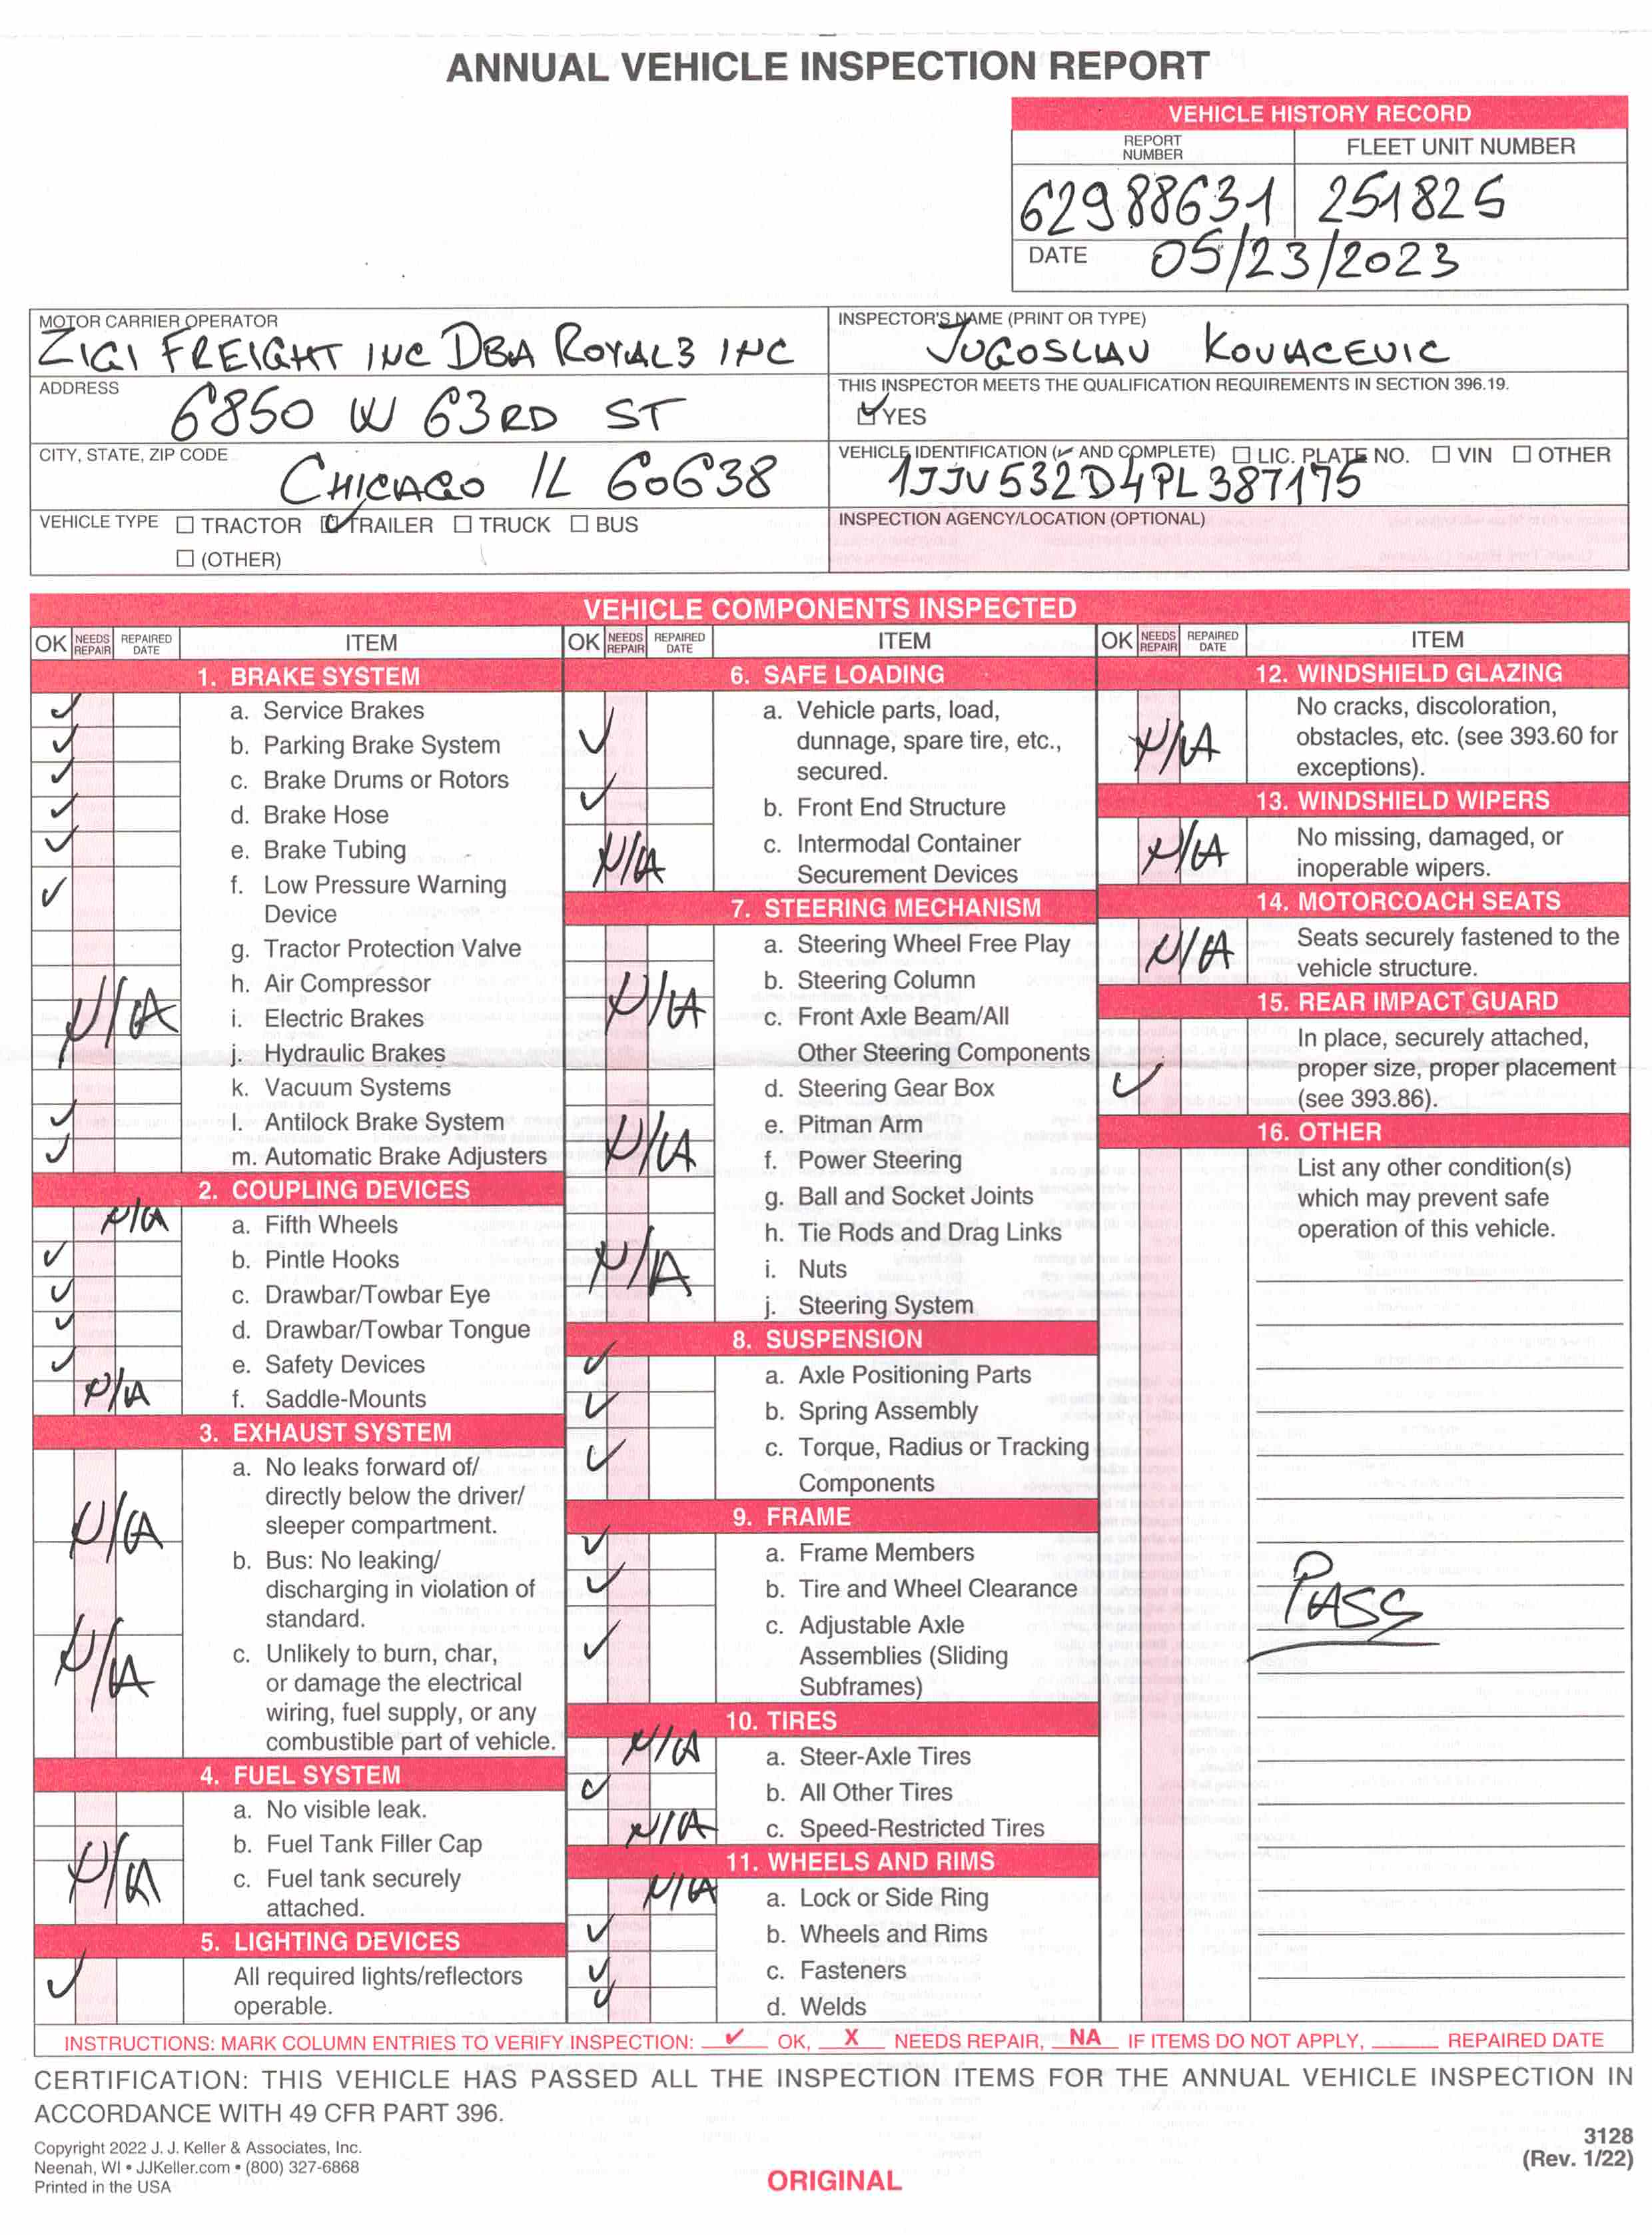 ANNUAL VEHICLE INSPECTION REPORT
VEHICLE HISTORY RECORD
REPORT NUMBER
FLEET UNIT NUMBER
62988631
251825
DATE 05/23/2023
MOTOR CARRIER OPERATOR
ZIGI FREIGHT INC DBA ROYAL3 INC
INSPECTOR'S NAME (PRINT OR TYPE)
JUGOSLAV KOVACEVIC
ADDRESS
6850 W 63RD ST
THIS INSPECTOR MEETS THE QUALIFICATION REQUIREMENTS IN SECTION 396.19.
☑ YES
CITY, STATE, ZIP CODE
CHICAGO IL 60638
VEHICLE IDENTIFICATION (✓ AND COMPLETE) ☐ LIC. PLATE NO. ☐ VIN ☐ OTHER
1JJV532D4PL387175
VEHICLE TYPE ☐ TRACTOR ☑ TRAILER ☐ TRUCK ☐ BUS
☐ (OTHER)
INSPECTION AGENCY/LOCATION (OPTIONAL)
VEHICLE COMPONENTS INSPECTED
OK NEEDS REPAIR REPAIRED DATE ITEM
1. BRAKE SYSTEM
✓ a. Service Brakes
✓ b. Parking Brake System
✓ c. Brake Drums or Rotors
✓ d. Brake Hose
✓ e. Brake Tubing
✓ f. Low Pressure Warning
Device
g. Tractor Protection Valve
h. Air Compressor
N/A i. Electric Brakes
j. Hydraulic Brakes
k. Vacuum Systems
✓ l. Antilock Brake System
✓ m. Automatic Brake Adjusters
2. COUPLING DEVICES
N/A a. Fifth Wheels
✓ b. Pintle Hooks
✓ c. Drawbar/Towbar Eye
✓ d. Drawbar/Towbar Tongue
✓ e. Safety Devices
N/A f. Saddle-Mounts
3. EXHAUST SYSTEM
a. No leaks forward of/
directly below the driver/
N/A sleeper compartment.
b. Bus: No leaking/
discharging in violation of
standard.
N/A c. Unlikely to burn, char,
or damage the electrical
wiring, fuel supply, or any
combustible part of vehicle.
4. FUEL SYSTEM
a. No visible leak.
b. Fuel Tank Filler Cap
N/A c. Fuel tank securely
attached.
5. LIGHTING DEVICES
✓ All required lights/reflectors
operable.
OK NEEDS REPAIR REPAIRED DATE ITEM
6. SAFE LOADING
✓ a. Vehicle parts, load,
dunnage, spare tire, etc.,
secured.
✓ b. Front End Structure
N/A c. Intermodal Container
Securement Devices
7. STEERING MECHANISM
a. Steering Wheel Free Play
b. Steering Column
N/A c. Front Axle Beam/All
Other Steering Components
d. Steering Gear Box
e. Pitman Arm
N/A f. Power Steering
g. Ball and Socket Joints
h. Tie Rods and Drag Links
N/A i. Nuts
j. Steering System
8. SUSPENSION
✓ a. Axle Positioning Parts
✓ b. Spring Assembly
✓ c. Torque, Radius or Tracking
Components
9. FRAME
✓ a. Frame Members
✓ b. Tire and Wheel Clearance
✓ c. Adjustable Axle
Assemblies (Sliding
Subframes)
10. TIRES
N/A a. Steer-Axle Tires
✓ b. All Other Tires
N/A c. Speed-Restricted Tires
11. WHEELS AND RIMS
N/A a. Lock or Side Ring
✓ b. Wheels and Rims
✓ c. Fasteners
✓ d. Welds
OK NEEDS REPAIR REPAIRED DATE ITEM
12. WINDSHIELD GLAZING
No cracks, discoloration,
N/A obstacles, etc. (see 393.60 for
exceptions).
13. WINDSHIELD WIPERS
N/A No missing, damaged, or
inoperable wipers.
14. MOTORCOACH SEATS
N/A Seats securely fastened to the
vehicle structure.
15. REAR IMPACT GUARD
In place, securely attached,
✓ proper size, proper placement
(see 393.86).
16. OTHER
List any other condition(s)
which may prevent safe
operation of this vehicle.
PASS
INSTRUCTIONS: MARK COLUMN ENTRIES TO VERIFY INSPECTION: ✓ OK, X NEEDS REPAIR, NA IF ITEMS DO NOT APPLY, ____ REPAIRED DATE
CERTIFICATION: THIS VEHICLE HAS PASSED ALL THE INSPECTION ITEMS FOR THE ANNUAL VEHICLE INSPECTION IN
ACCORDANCE WITH 49 CFR PART 396.
Copyright 2022 J. J. Keller & Associates, Inc.
Neenah, WI • JJKeller.com • (800) 327-6868
Printed in the USA
ORIGINAL
3128
(Rev. 1/22)